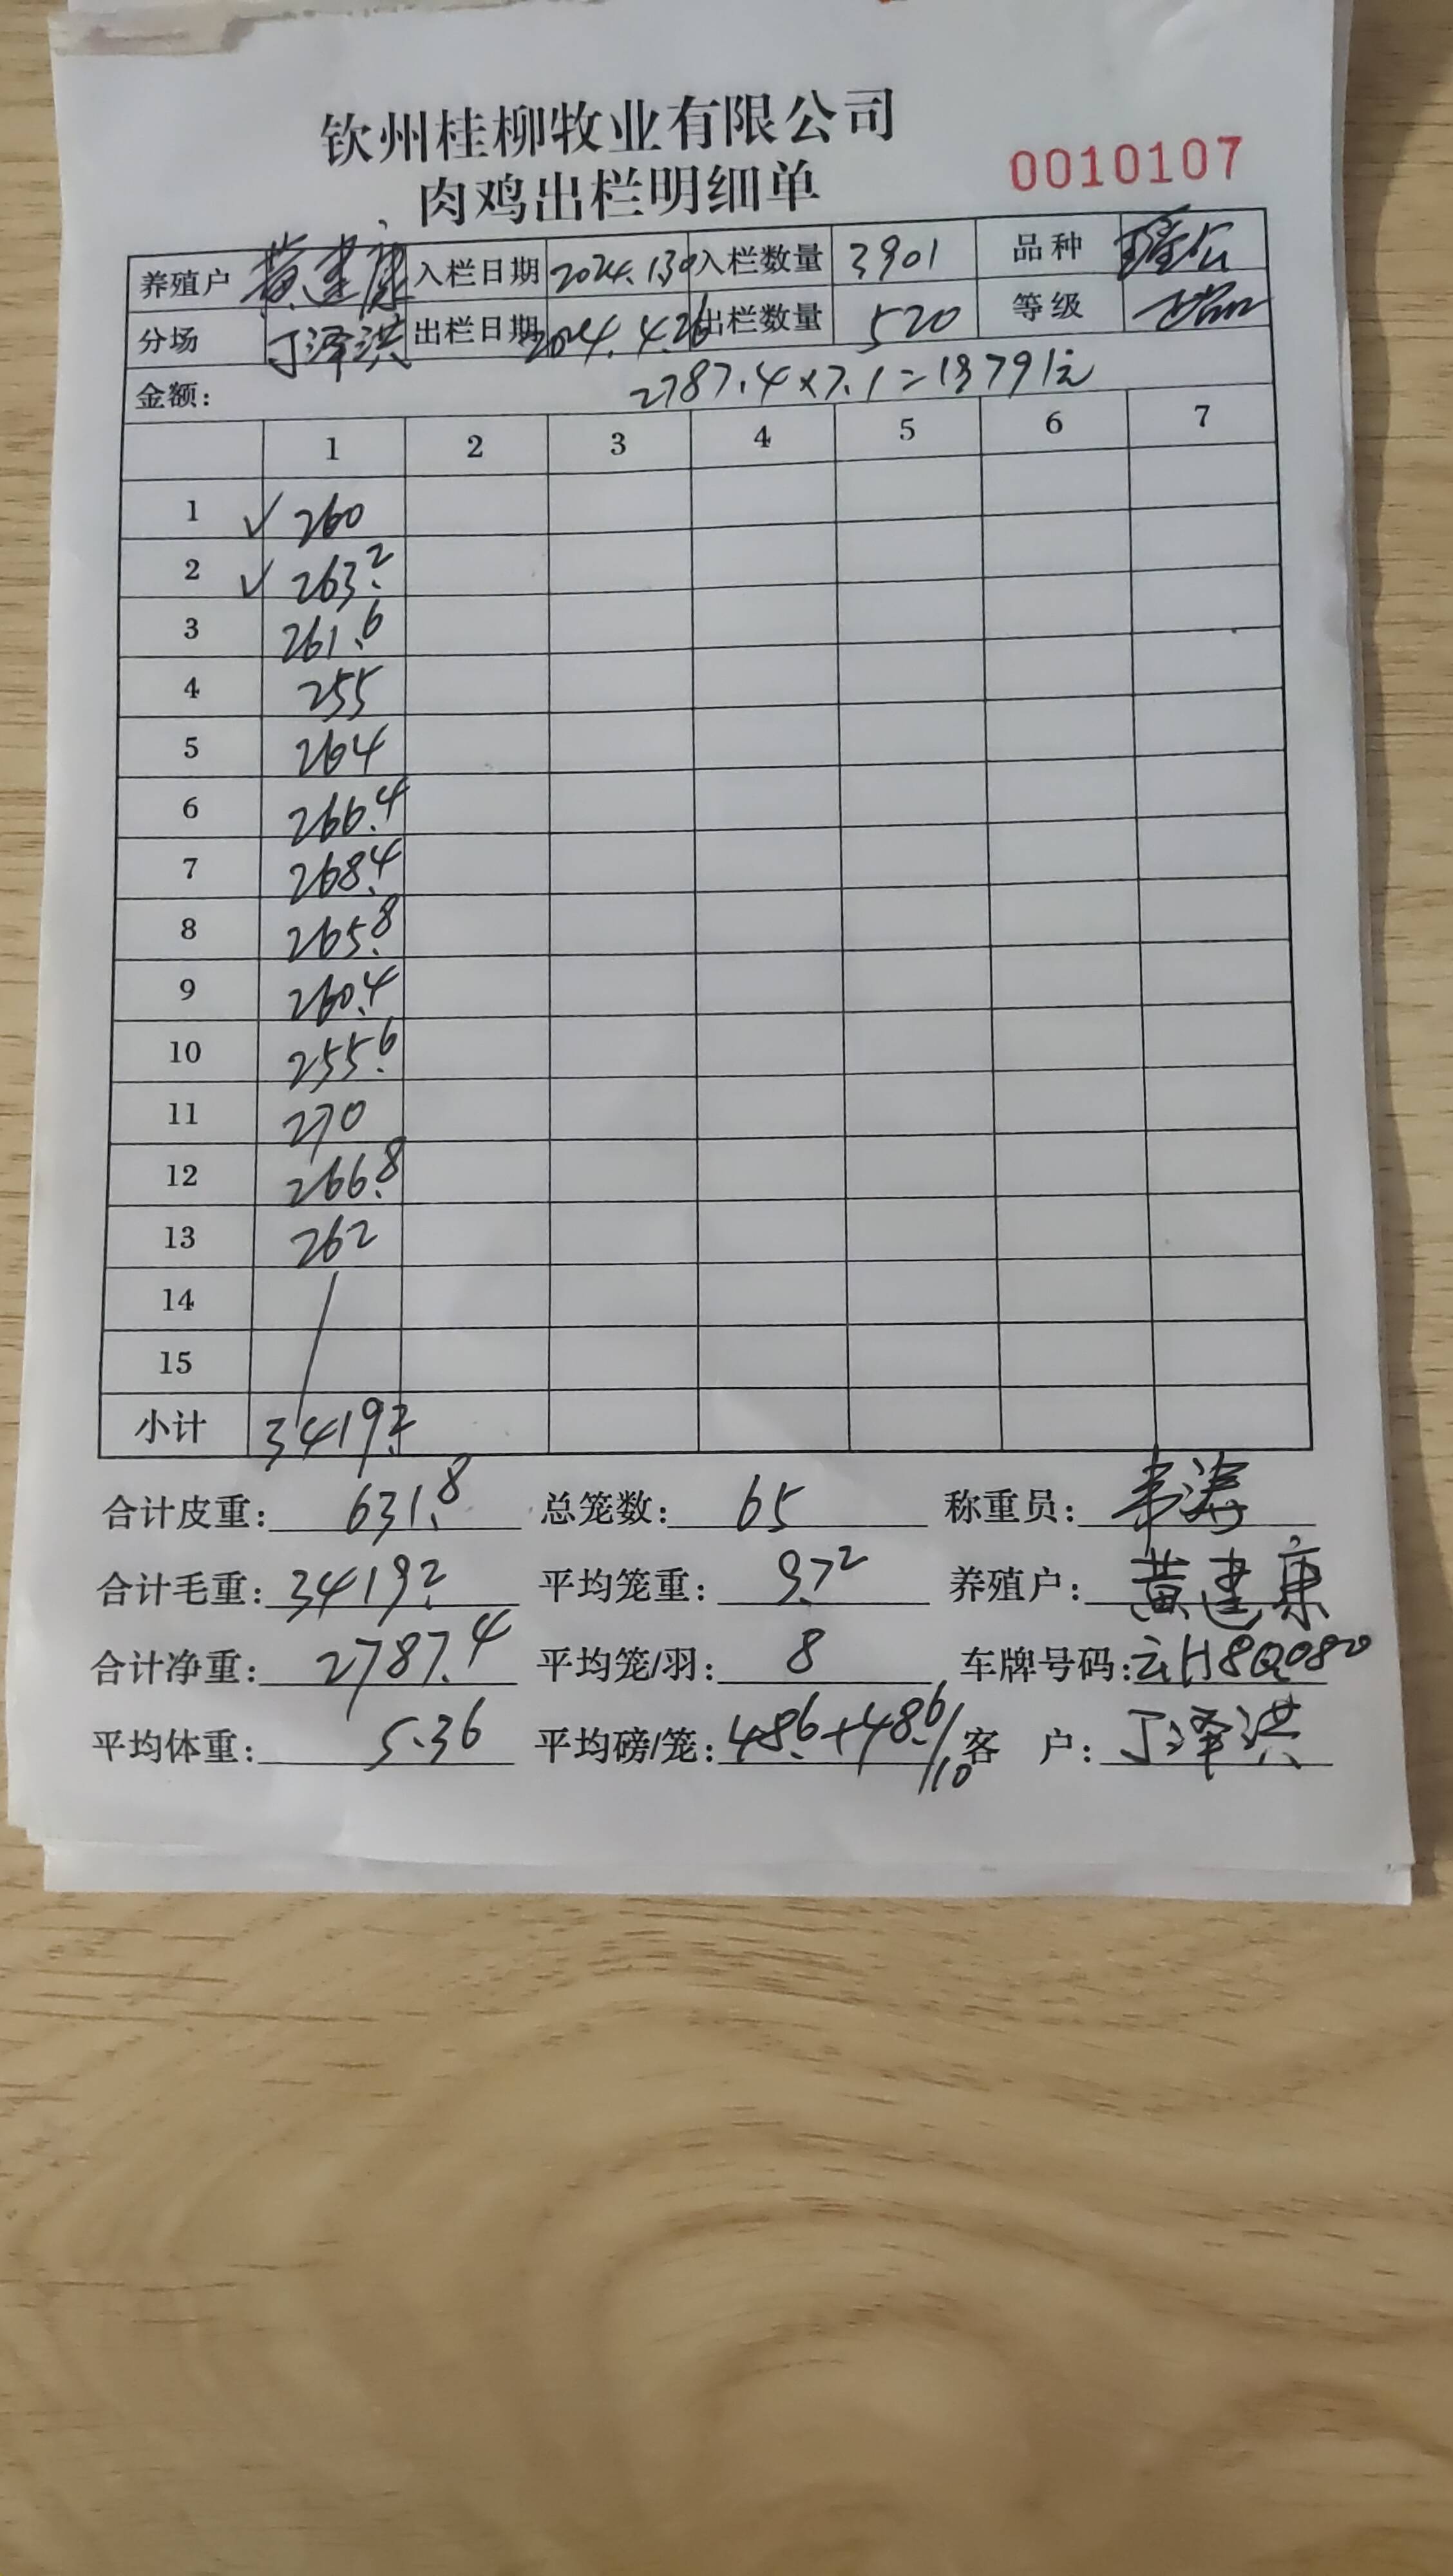 钦州桂柳牧业有限公司
肉鸡出栏明细单
0010107
养殖户 黄建康 入栏日期 2024.1.30 入栏数量 3901 品种
分场 丁泽洪 出栏日期 2024.4.26 出栏数量 520 等级
金额: 2787.4×7.1=19791元
1 2 3 4 5 6 7
1 ✓ 260
2 ✓ 263.2
3 261.6
4 255
5 264
6 266.4
7 268.4
8 265.8
9 260.4
10 255.6
11 270
12 266.8
13 262
14
15
小计 3419.2
合计皮重: 631.8 总笼数: 65 称重员: 韦涛
合计毛重: 3419.2 平均笼重: 9.72 养殖户: 黄建康
合计净重: 2787.4 平均笼/羽: 8 车牌号码: 云H8Q080
平均体重: 5.36 平均磅/笼: 48.6+48.6/10 客 户: 丁泽洪